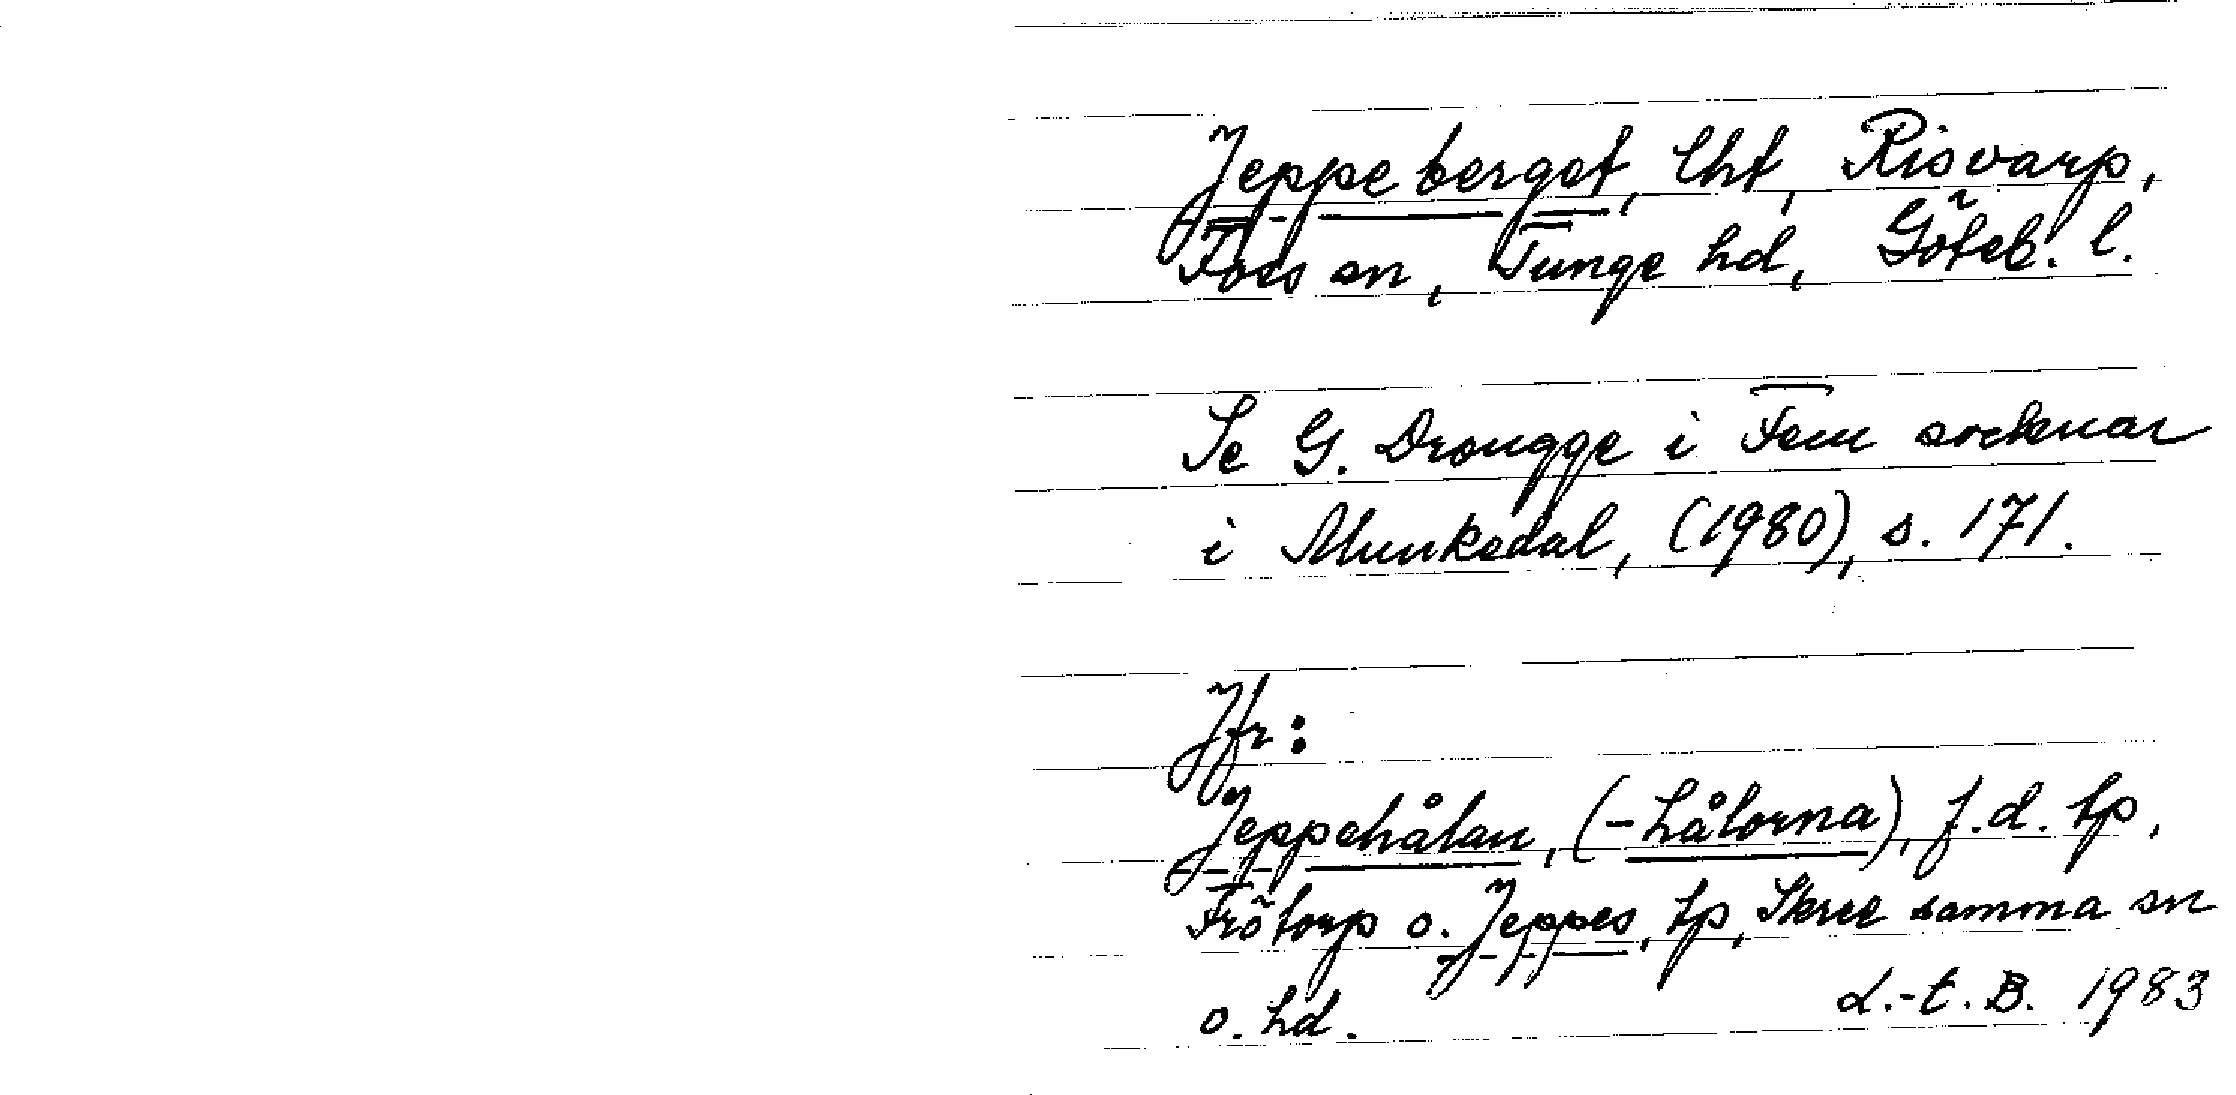 Jeppeberget, lht, Risvarp,
Foss sn, Tunge hd, Göteb. l.
Se G. Drougge i Fem socknar
i Munkedal, (1980), s. 171.
Jfr:
Jeppehålan, (-hålorna), f.d. tp,
Frötorp o. Jeppes, tp, Skree samma sn
o. hd. L.-t. B. 1983